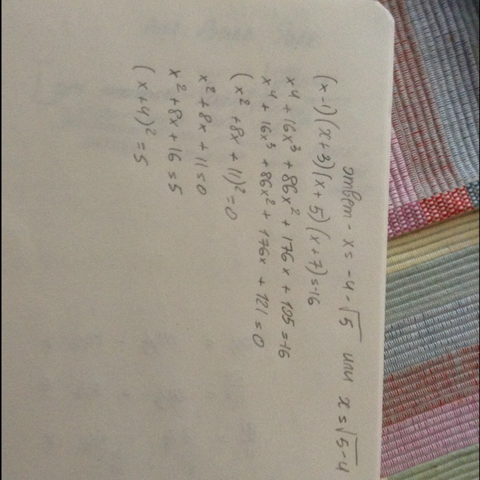 ответ - x = -4 - √5 или x = √5 - 4
(x-1)(x+3)(x+5)(x+7)=-16
x⁴ + 16x³ + 86x² + 176x + 105 = -16
x⁴ + 16x³ + 86x² + 176x + 121 = 0
(x² + 8x + 11)² = 0
x² + 8x + 11 = 0
x² + 8x + 16 = 5
(x+4)² = 5